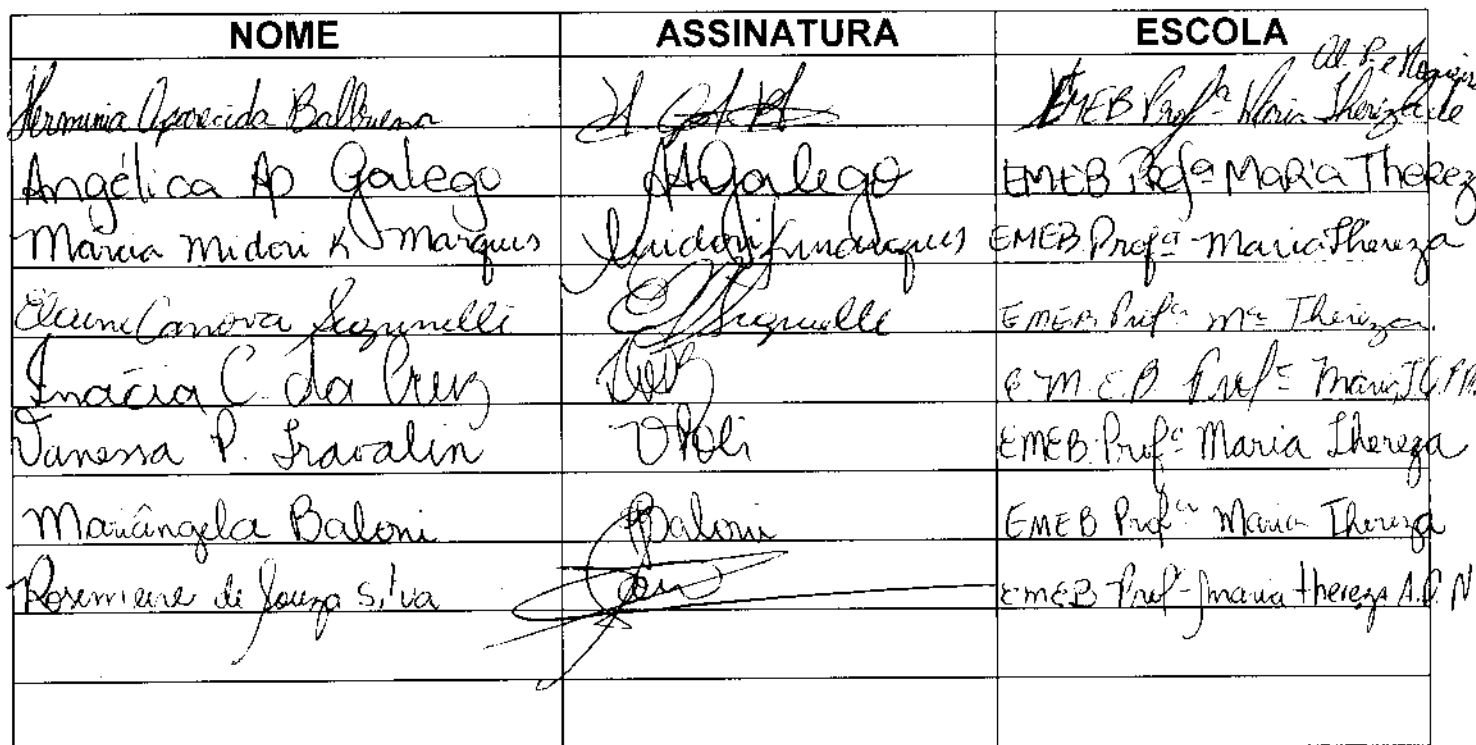 NOME ASSINATURA ESCOLA
Herminia Aparecida Balbuena EMEB Profª Maria Thereza de
Angélica Ap Galego AAGalego EMEB Profª Maria Therez
Márcia Midori K Marques Midori K marques EMEB Profª Maria Thereza
Elaine Canova Signelli EMEB Profª Mª Thereza.
Inácia C. da Cruz Cruz E.M.E.B. Profª Maria T.
Vanessa P. Travalin EMEB Profª Maria Thereza
Mariângela Baloni Baloni EMEB Profª Maria Thereza
Rosemeire de Souza Silva EMEB Profª maria thereza A.P. N